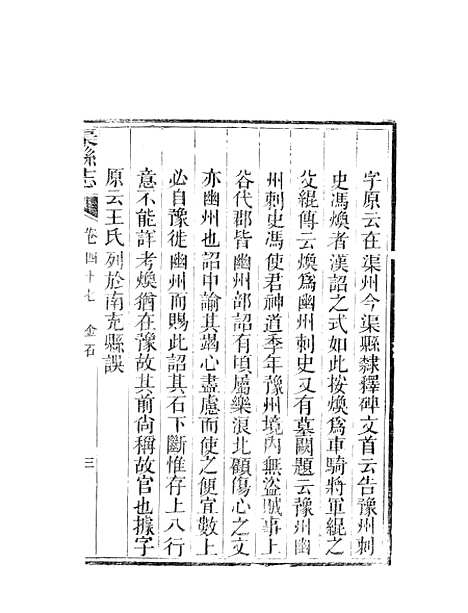 字原云在渠州今渠縣隸釋碑文首云告豫州刺
史馮煥者漢詔之式如此按煥爲車騎將軍緄之
父緄傳云煥爲幽州刺史又有墓闕題云豫州幽
州刺史馮使君神道季年豫州境内無盜賊事上
谷代郡皆幽州部詔有頃屬樂浪北顧傷心之文
亦幽州也詔中諭其竭心盡慮而使之便宜數上
必自豫徙幽州而賜此詔其石下斷惟存上八行
意不能詳考煥猶在豫故其前尙稱故官也據字
原云王氏列於南充縣誤
渠縣志
卷四十七 金石
三